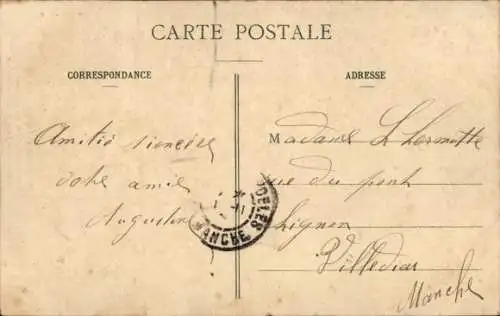 CARTE POSTALE
CORRESPONDANCE
ADRESSE
Amitié sincère
votre amie
Augustine
Madame Lhermitte
rue du pont
Chignon
Villedieu
Manche
POELES
MANCHE